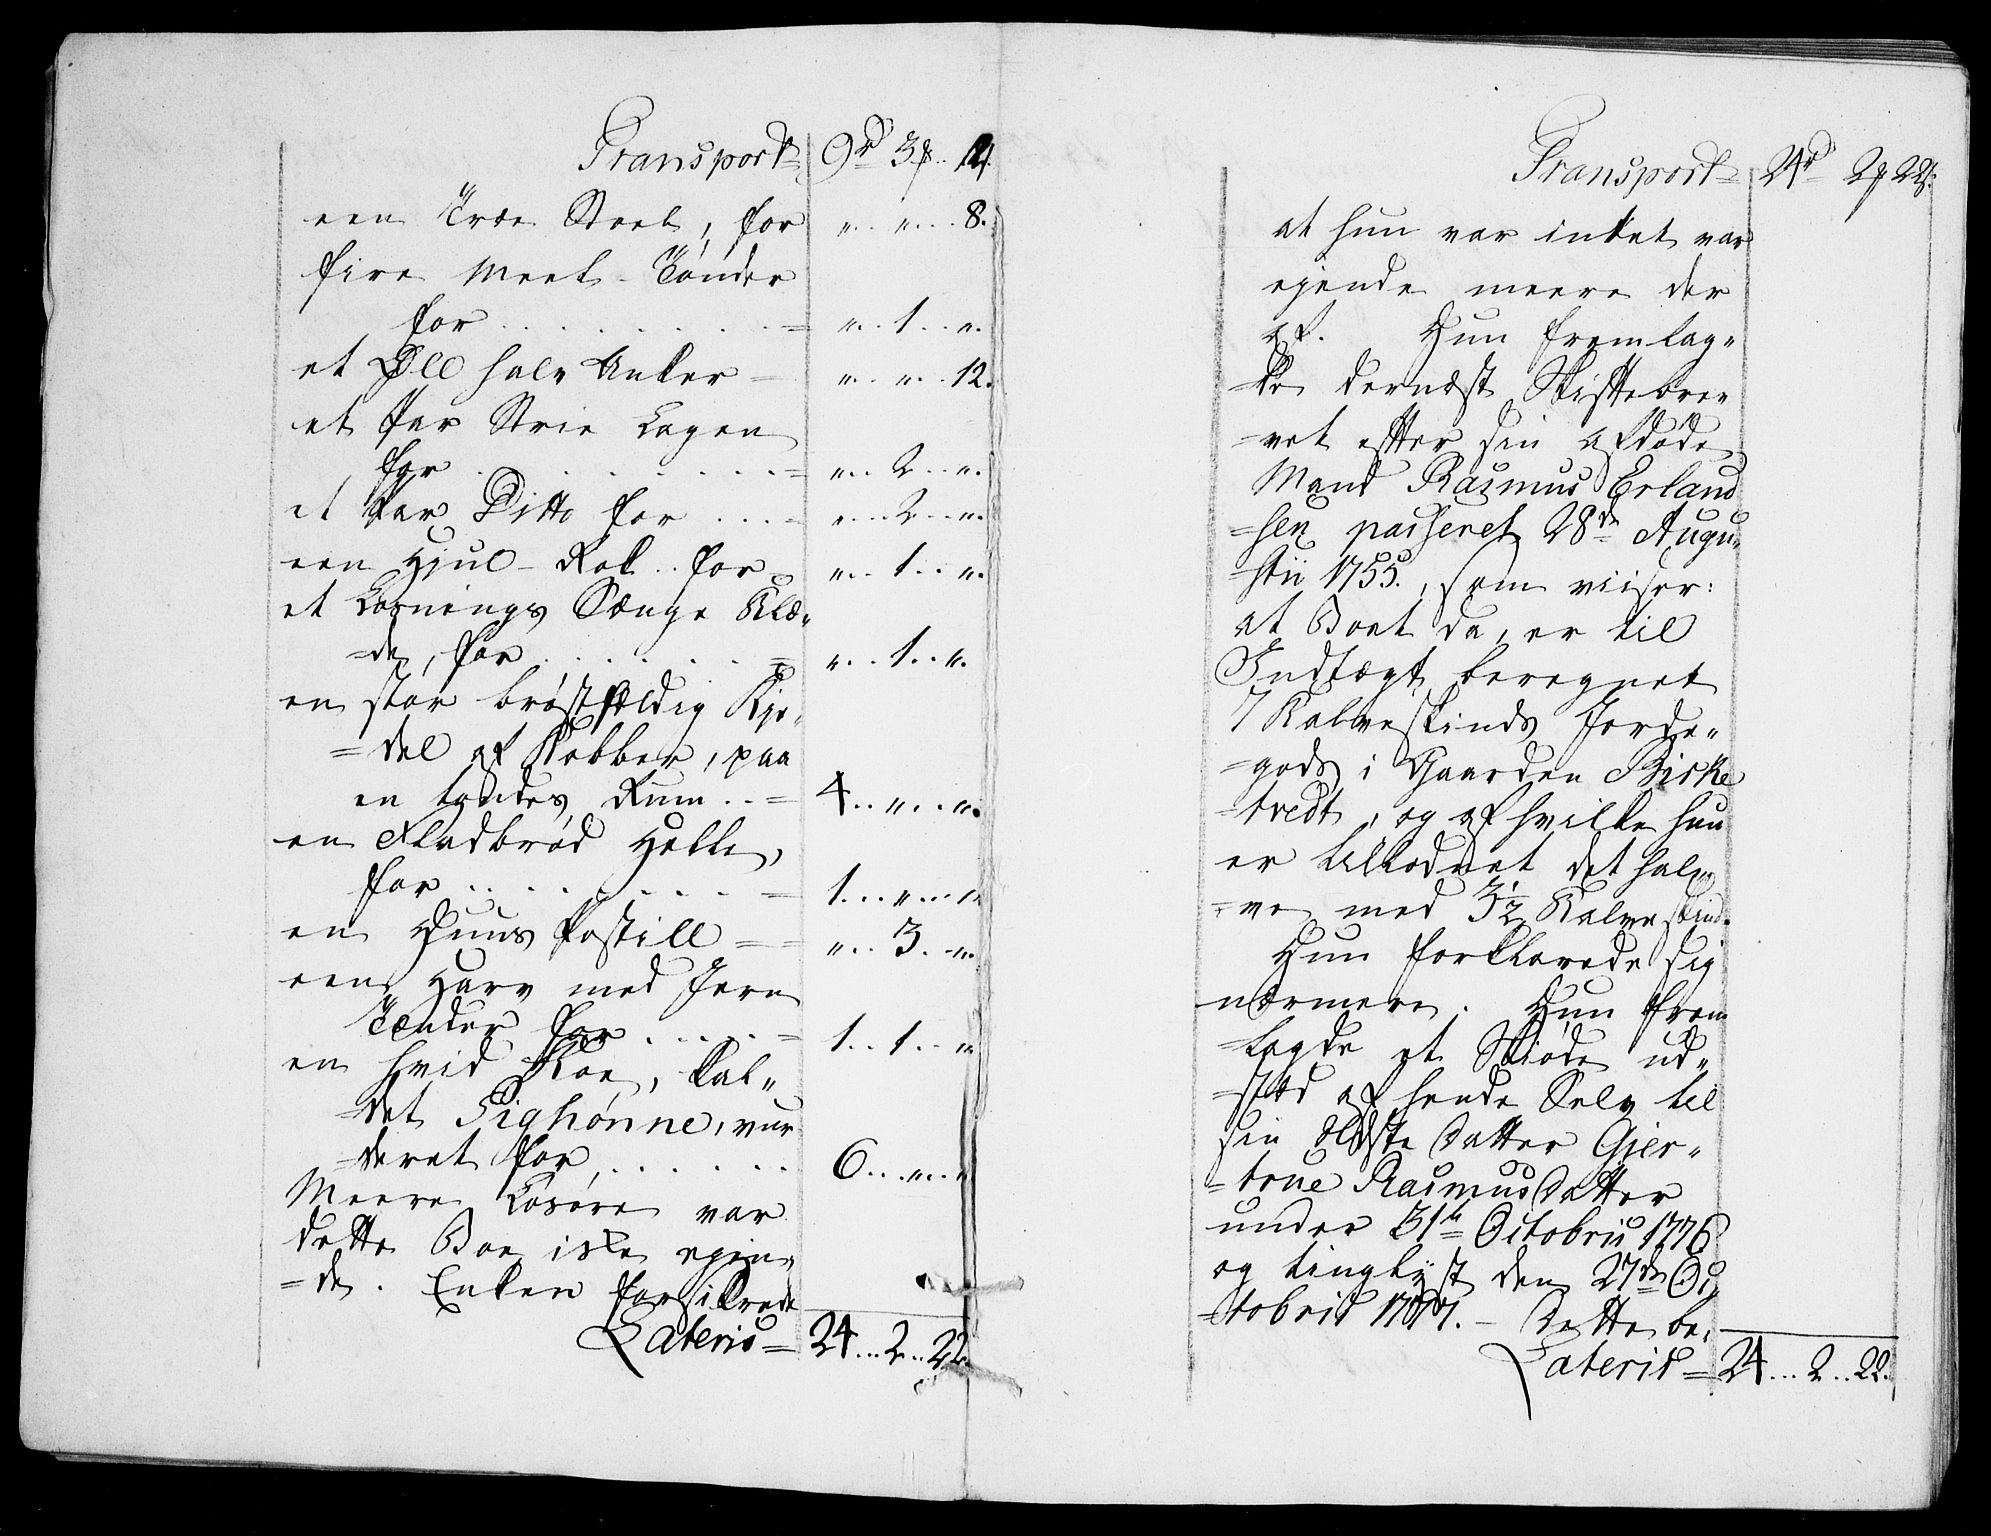 Transport = 9 rd 3 ƒ..
een Træe Stoel, for „.. „... 8.
fire Meel-Tønder
for ......... = „.. 1... „.
et Øll halv Anker = „.. „.. 12.
et Par Strie Lagen
for ......... = „.. 2... „.
et Par Ditto for ... = „... 2... „.
een Hjul-Rok.. for = „... 1... „.
et Sænge Klæ„
=de, for ...... = „... 1... „.
en stor brøstfældig Kje„
=del af Kobber, paa
en tøndes Rum.. = 4.. „... „.
en Fladbrød Helle,
for ........ = 1... „... „.
en Huus Postill = = „... 3. „.
een Harv med Jern
Tænder for ..... = 1... 1... „.
en hvid Koe, kal„
=det Pighønne, vur
=deret for, ...... 6... „... „
Meere Løsøre var
dette Boe icke ejen„
=de. Enken forsikrede
Lateris = 24... 2.. 22.
Transport = 24 rd 2 ƒ 22 ƒ.
at hun var intet var
ejende meere der
af. Hun fremlag„
=de dernæst Skiftebre„
=vet efter sin afdøde
Mand Rasmus Erland
=sen passeret 28de Augu„
=stii 1755., som viiser:
at Boet da, er til
Indtægt beregnet
7 Kalveskinds Jorde„
=gods i Gaarden Birke
=tvedt, og af hvilke hun
er tilloddet det hal„
=ve med 3½ Kalveskind.
Hun forklarede sig
nærmere. Hun frem
=lagde et Skiøde ud„
=sted af hende Selv til
sin Eldste Datter Gjer„
=true Rasmusdatter
under 31te Octobris 1776
og tinglyst den 27de Oc„
=tobris 1777. – Dette be„
Lateris = 24... 2.. 22.